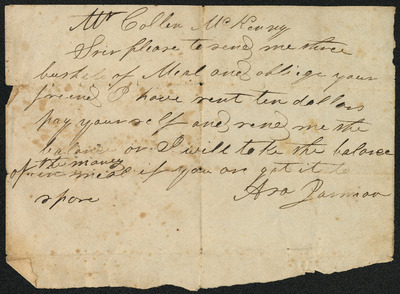 Mr Collen McKenny
Sir please to send me three
bushels of Meal and obliege your
freind I have sent ten dollars
pay yourself and send me the
balance or I will take the balance
of the money in meal if you on got it to
spore
Asa